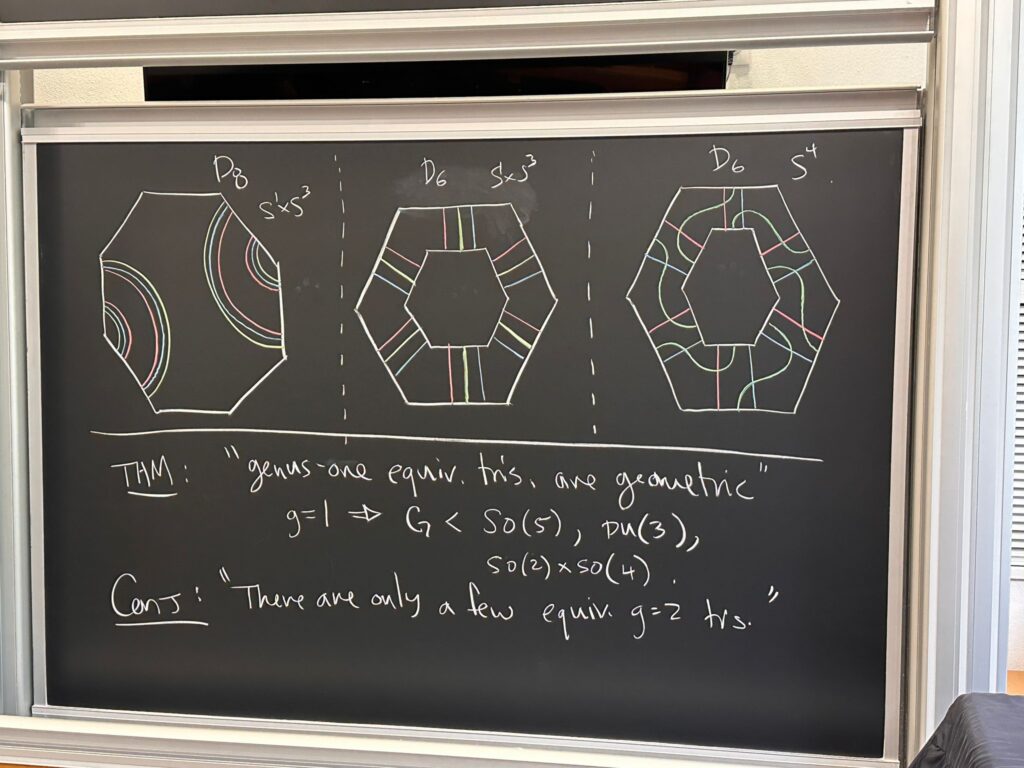 D8
S¹×S³
D6
S¹×S³
D6
S⁴.
THM: "genus-one equiv. tris. are geometric"
g=1 ⇒ G < SO(5), PU(3),
SO(2)×SO(4).
Conj: "There are only a few equiv. g=2 trs."